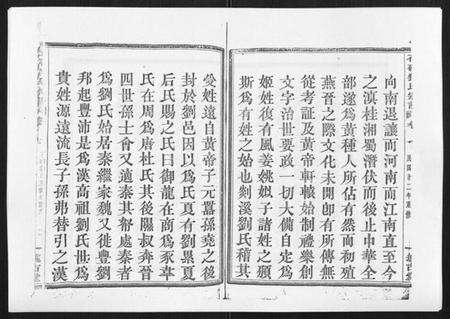 向南退讓而河南而江南直至今
之滇桂湘蜀潛伏而後止中華全
部遂爲黃種人所佔有然而初殖
燕晉之際文化未開卽有所傳無
從考證及黃帝軒轅始制禮樂創
文字治世要政一切大備自定爲
姬姓復有風姜姚姒子諸姓之頒
斯爲有姓之始也剡溪劉氏稽其
受姓遠自黃帝子元囂孫堯之後
封於劉邑因以爲氏夏有劉累夏
后氏賜之氏曰御龍在商爲豕韋
氏在周爲唐杜氏其後隰叔奔晉
四世孫士會又適秦其帑處秦者
爲劉氏始居秦繼家魏又徙豐劉
邦起豐沛是爲漢高祖劉氏世爲
貴姓源遠流長子孫弗替引之漢